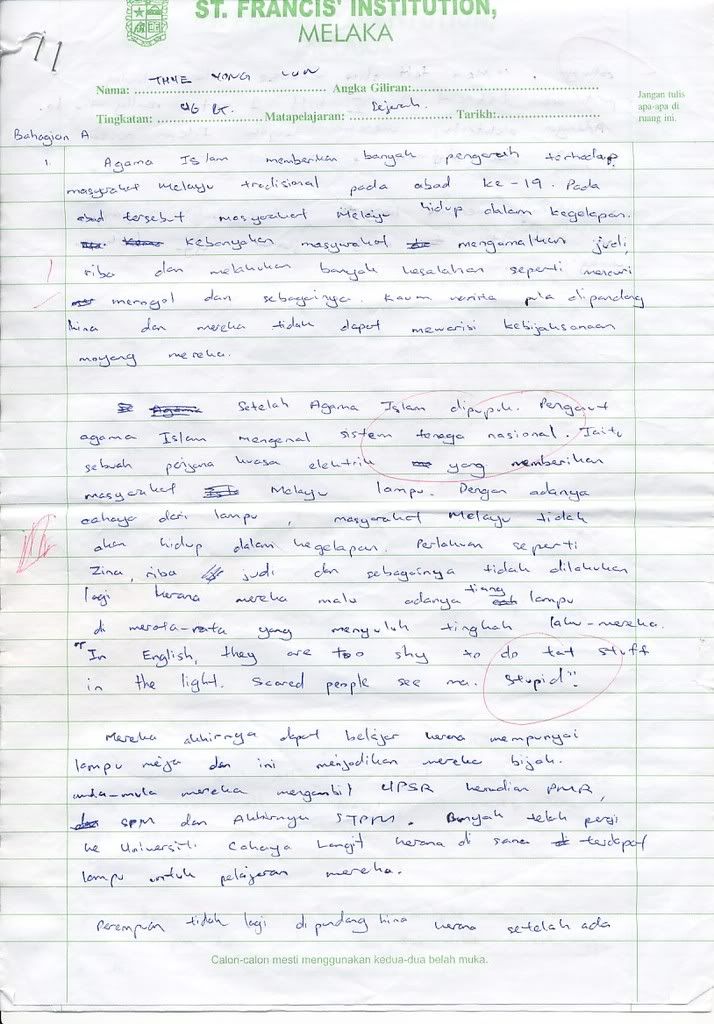 ST. FRANCIS' INSTITUTION,
MELAKA
Nama: THME YONG LUN Angka Giliran:
Jangan tulis
apa-apa di
ruang ini.
Tingkatan: Matapelajaran: Sejarah. Tarikh:
Bahagian A
1. Agama Islam memberikan banyak pengaruh terhadap
masyarakat Melayu tradisional pada abad ke-19. Pada
abad tersebut masyarakat Melayu hidup dalam kegelapan.
Kebanyakan masyarakat mengamalkan judi,
riba dan melakukan banyak kesalahan seperti mencuri
merogol dan sebagainya. Kaum wanita pula dipandang
hina dan mereka tidak dapat mewarisi kebijaksanaan
moyang mereka.
Setelah Agama Islam dipupuk. Penganut
agama Islam mengenal sistem tenaga nasional. Iaitu
sebuah penjana kuasa elektrik yang memberikan
masyarakat Melayu lampu. Dengan adanya
cahaya dari lampu, masyarakat Melayu tidak
akan hidup dalam kegelapan. Perlakuan seperti
Zina, riba judi dan sebagainya tidak dilakukan
lagi kerana mereka malu adanya tiang lampu
di merata-rata yang menyuluh tingkah laku-mereka.
"In English, they are too shy to do tat stuff
in the light. Scared people see ma. Stupid!"
Mereka akhirnya dapat belajar kerana mempunyai
lampu meja dan ini menjadikan mereka bijak.
mula-mula mereka mengambil UPSR kemudian PMR,
SPM dan Akhirnya STPM. Banyak telah pergi
ke Universiti Cahaya Langit kerana di sana terdapat
lampu untuk pelajaran mereka.
Perempuan tidak lagi dipandang hina kerana setelah ada
Calon-calon mesti menggunakan kedua-dua belah muka.